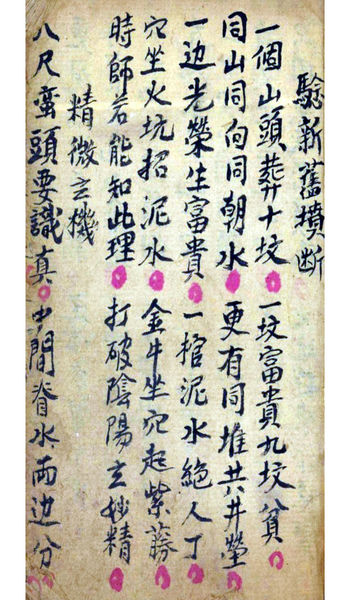 驗新舊墳斷
一個山頭葬十坟 一坟富貴九坟貧
同山同向同朝水 更有同堆共井塋
一边光榮生富貴 一棺泥水絕人丁
穴坐火坑招泥水 金牛坐穴起紫藤
時師若能知此理 打破陰陽玄妙精
精微玄機
八尺蛮頭要識真 中間脊水両边分